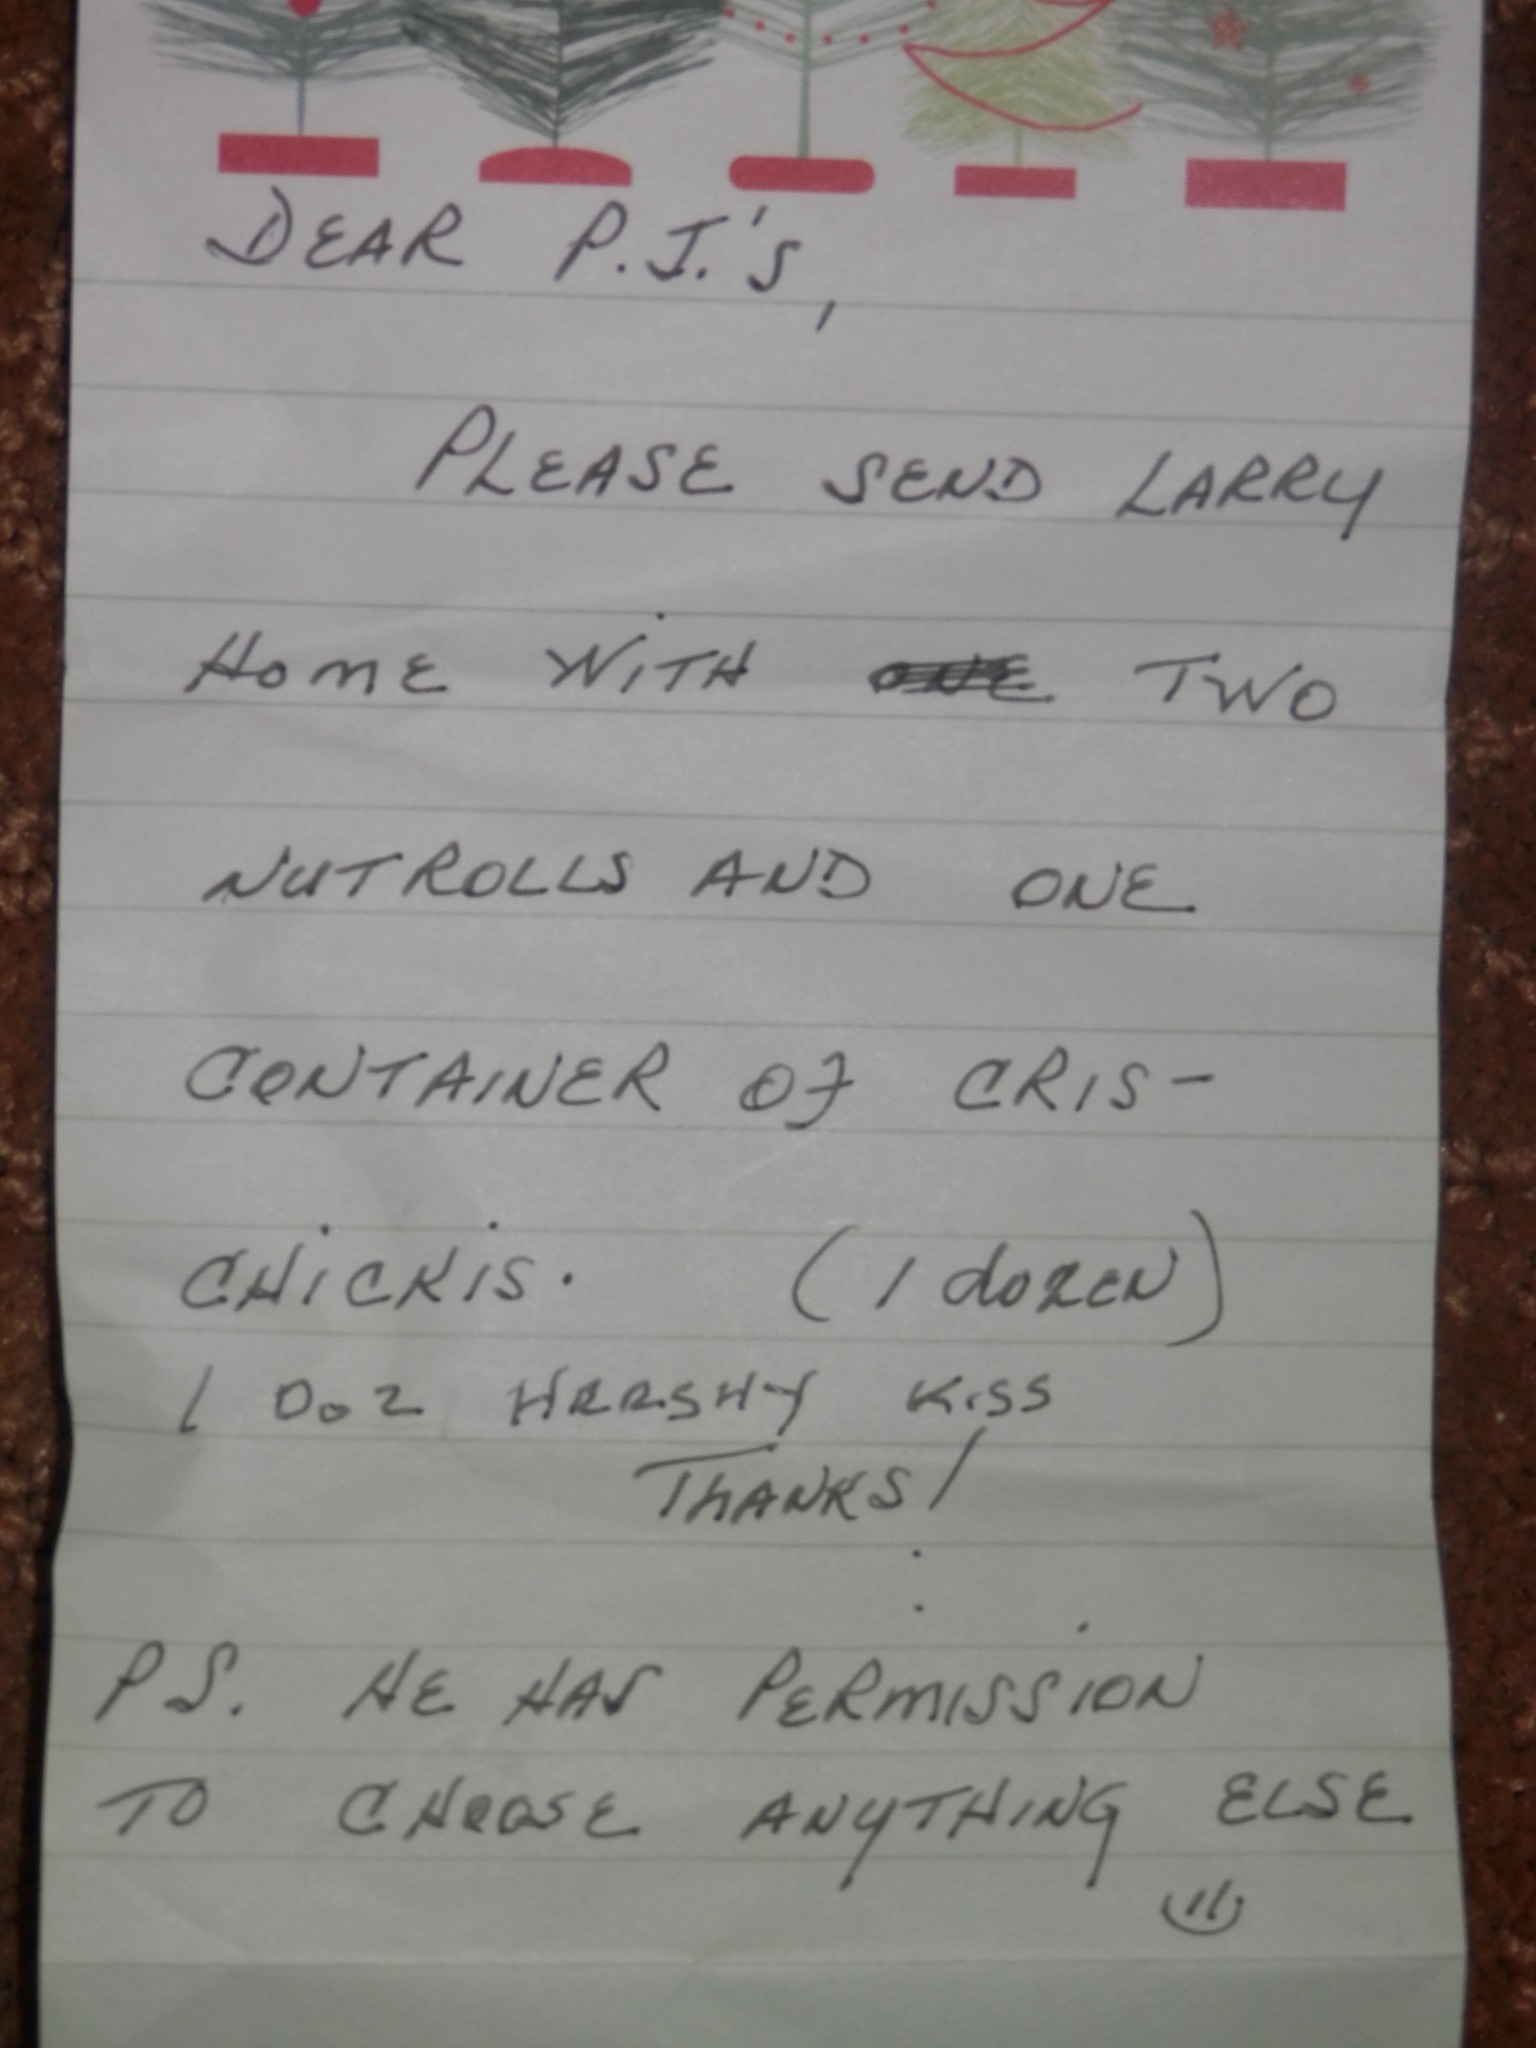 DEAR P.J.'s,
PLEASE SEND LARRY
HOME WITH ONE TWO
NUTROLLS AND ONE
CONTAINER OF CRIS-
CHICKIS. (1 dozen)
1 DOZ HERSHY KISS
THANKS!
P.S. HE HAS PERMISSION
TO CHOOSE ANYTHING ELSE